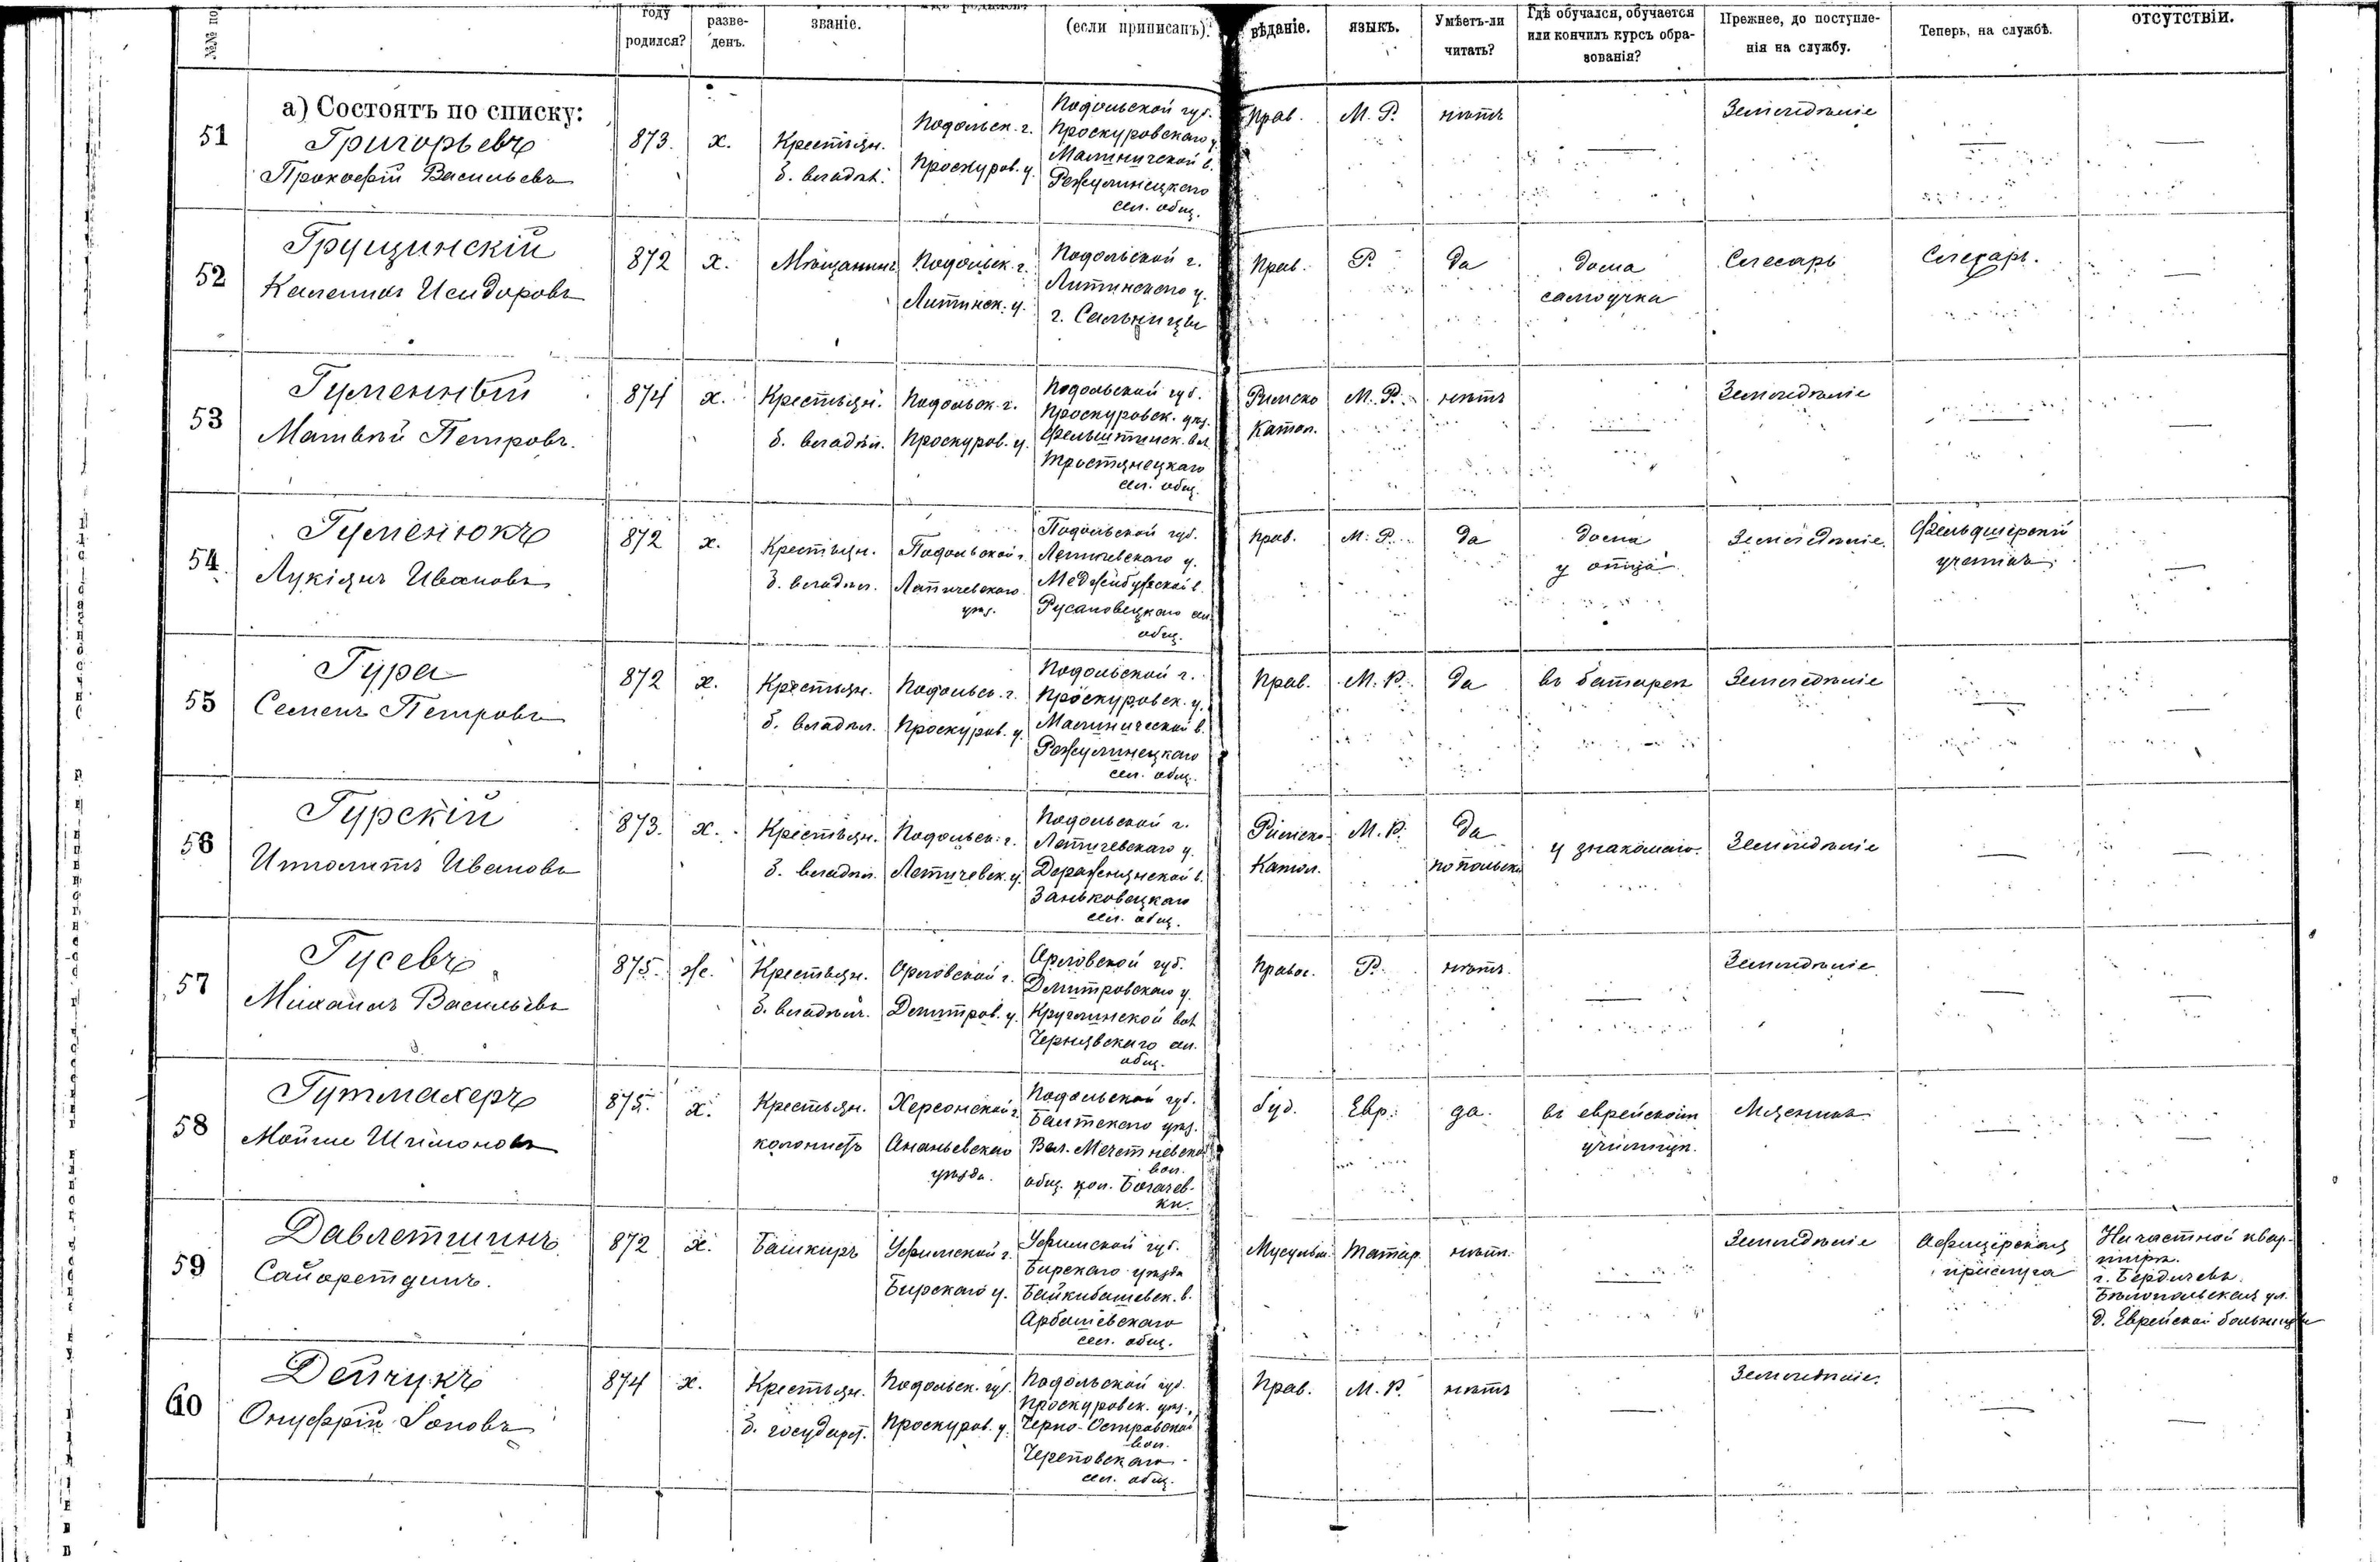 году
родился?
разве-
денъ.
званіе.
(если приписанъ).
вѣданіе.
языкъ.
Умѣетъ-ли
читать?
Гдѣ обучался, обучается
или кончилъ курсъ обра-
зованія?
Прежнее, до поступле-
нія на службу.
Теперь, на службѣ.
отсутствіи.
а) Состоятъ по списку:
51
Григорьевъ
Прокофій Васильевъ
873.
х.
Крестьян.
б. владѣл.
Подольск. г.
Проскуров. у.
Подольской губ.
Проскуровскаго у.
Малиничской в.
Режулинецкаго
сел. общ.
Прав.
М. Р.
нѣтъ
—
Земледѣліе
—
—
52
Грущинскій
Калениκъ Исидоровъ
872
х.
Мѣщанинъ
Подольск. г.
Литинск. у.
Подольской г.
Литинскаго у.
г. Сальницы
Прав.
Р.
да
дома
самоучка
Слесарь
Слесарь.
—
53
Гуменный
Матвѣй Петровъ.
874
х.
Крестьян.
б. владѣл.
Подольск. г.
Проскуров. у.
Подольской губ.
Проскуровск. уѣз.
Фельштинск. вол
Тростянецкаго
сел. общ.
Римско
Катол.
М. Р.
нѣтъ
—
Земледѣліе
—
—
54.
Гуменюкъ
Лукіянъ Ивановъ
872
х.
Крестьян.
б. владѣл.
Подольской г.
Летичевскаго
уѣз.
Подольской губ.
Летичевскаго у.
Меджибужской в.
Русановецкаго сел.
общ.
Прав.
М. Р.
да
дома
у отца
Земледѣліе.
Фельдшерскій
ученикъ.
—
55
Гура
Семенъ Петровъ
872
х.
Крестьян.
б. владѣл.
Подольск. г.
Проскуров. у.
Подольской г.
Проскуровск. у.
Малинической в.
Режулинецкаго
сел. общ.
Прав.
М. Р.
да
въ батареѣ
Земледѣліе
—
—
56
Гурскій
Ипполитъ Ивановъ
873.
х.
Крестьян.
б. владѣл.
Подольск. г.
Летичевск. у.
Подольской г.
Летичевскаго у.
Деражнянской в.
Заньковецкаго
сел. общ.
Римско-
Катол.
М. Р.
да
по польски
у знакомаго.
Земледѣліе
—
—
57
Гусевъ
Михаилъ Васильевъ
875.
ж.
Крестьян.
б. владѣл.
Орловской г.
Дмитров. у.
Орловской губ.
Дмитровскаго у.
Круглинской вол.
Чернявскаго сел.
общ.
Правос.
Р.
нѣтъ.
—
Земледѣліе
—
—
58
Гутмахеръ
Мойше Шлимоновъ
875.
х.
Крестьян.
колонистъ
Херсонской г.
Ананьевскаго
уѣзда.
Подольской губ.
Балтскаго уѣз.
Вел. Мечетневской
вол.
общ. кол. Богачев-
ки.
Іуд.
Евр.
да.
въ еврейском
училищѣ.
—
—
59
Давлетшинъ
872
х.
Башкиръ
Уфимской г.
Бирскаго у.
Уфимской губ.
Бирскаго уѣзда
Байкибашевск. в.
Арбашевскаго
сел. общ.
Мусульм.
Татар.
нѣтъ.
—
Земледѣліе
Офицерская
прислуга
На частной квар-
тирѣ.
г. Бердичевъ.
Бѣлопольская ул.
д. Еврейской больницы
60
Дейчукъ
Онуфрій
874
х.
Крестьян.
б. государст.
Подольск. губ.
Проскуров. у.
Подольской губ.
Проскуровск. уѣз.,
Черно-Островской
вол.
Череповскаго
сел. общ.
Прав.
М. Р.
нѣтъ
—
Земледѣліе.
—
—